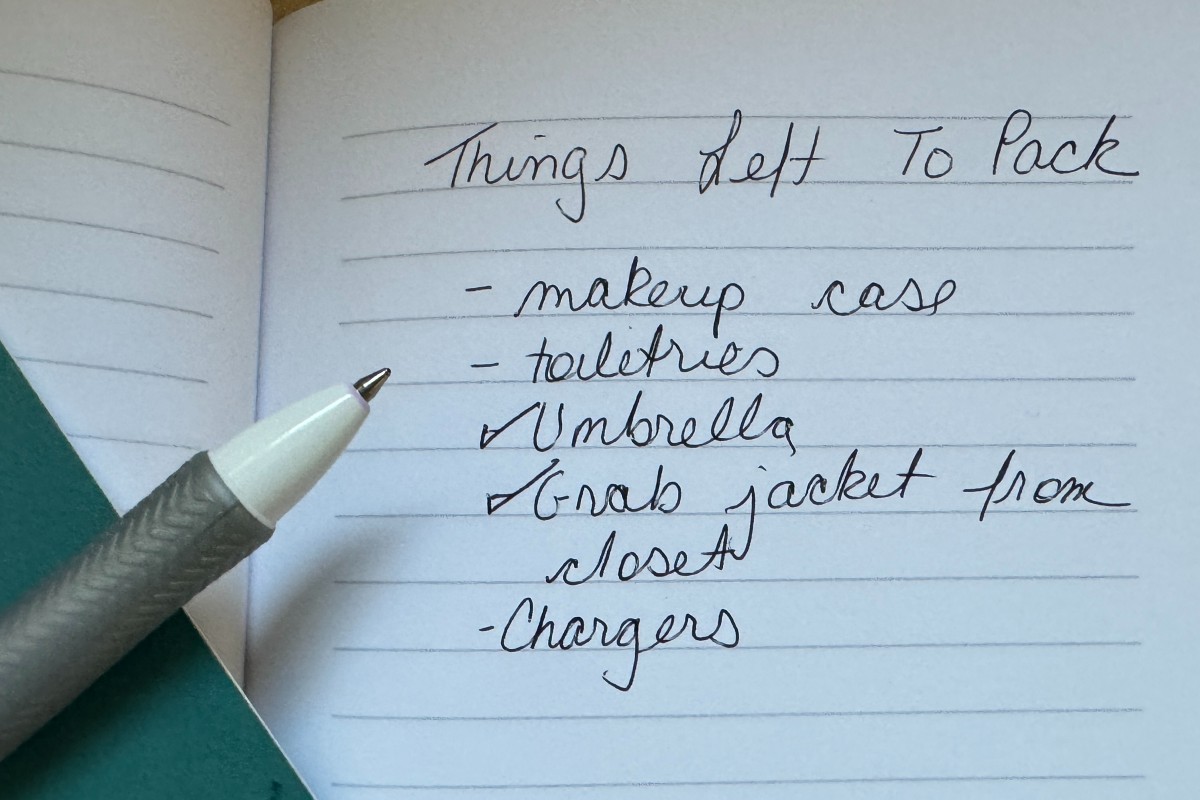 Things Left To Pack
- makeup case
- toiletries
✓Umbrella
✓Grab jacket from
closet
-Chargers